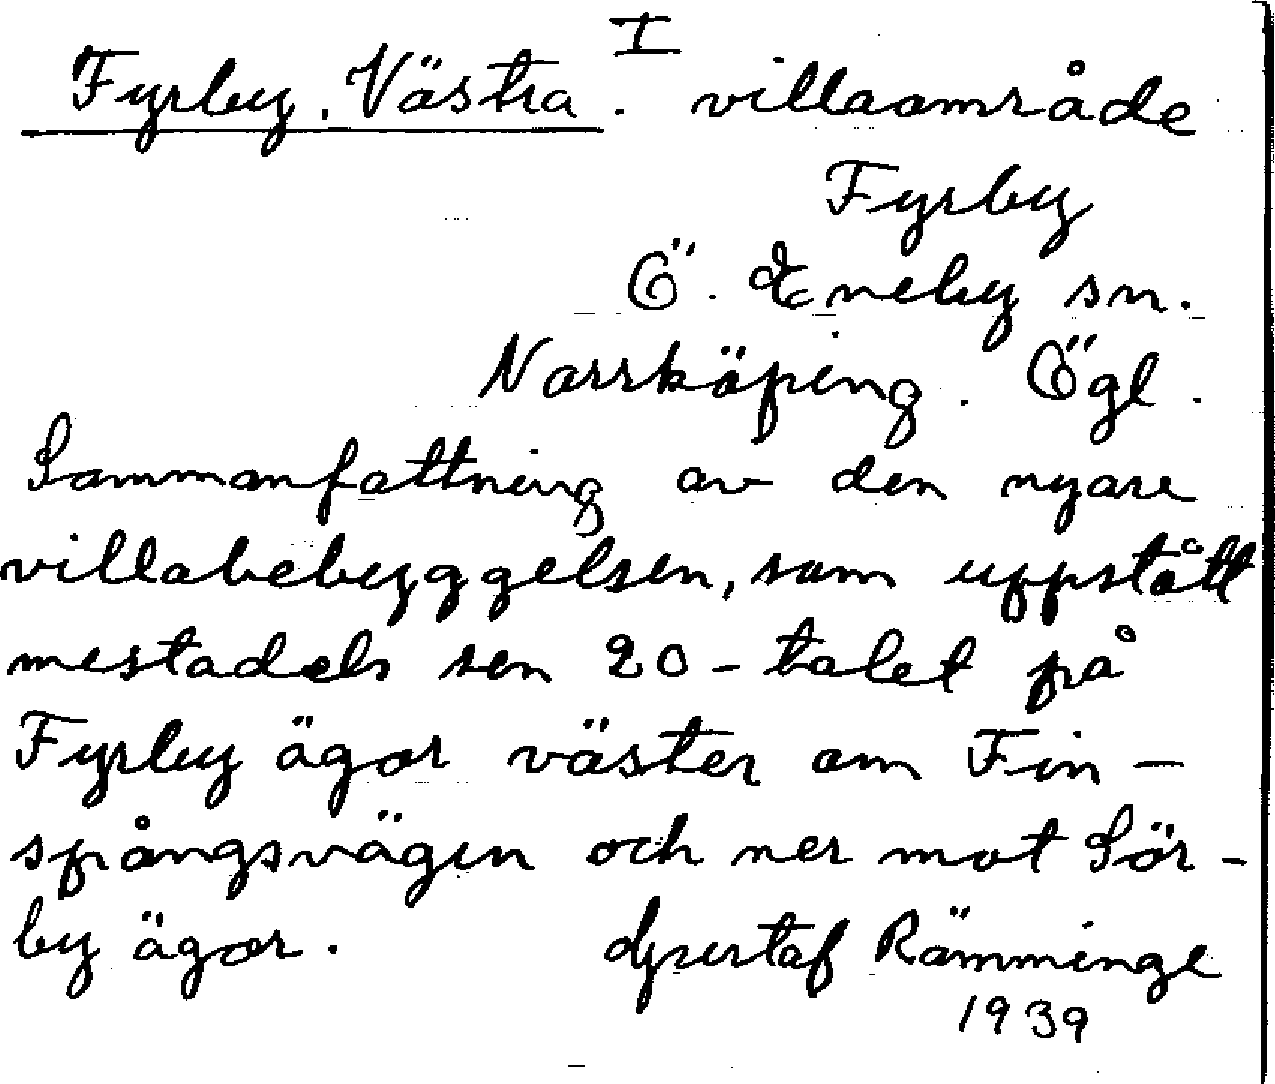 Fyrby. Västra. I villaområde
Fyrby
Ö. Eneby sn.
Norrköping. Ögl.
Sammanfattning av den nyare
villabebyggelsen, som uppstått
mestadels sen 20-talet på
Fyrby ägor väster om Fin-
spångsvägen och ner mot Sör-
by ägor. Gustaf Rämminge
1939